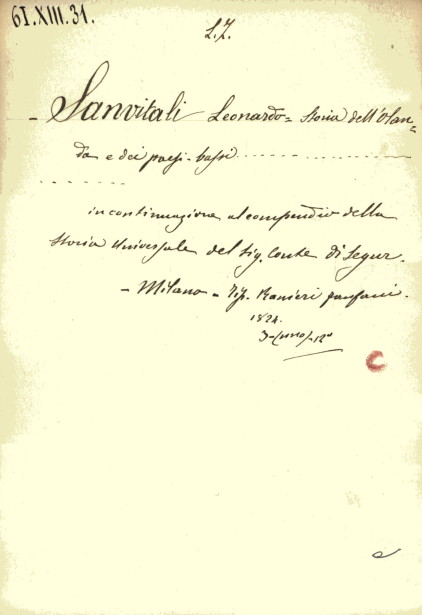 61.XIII.31.
L.7.
- Sanvitali Leonardo = Storia dell'Olan=
da e dei paesi-bassi
in continuazione al compendio della
storia Universale del Sig. Conte di Segur.
- Milano - Tip. Ranieri Fanfani.
1824.
3-(uno)-12°